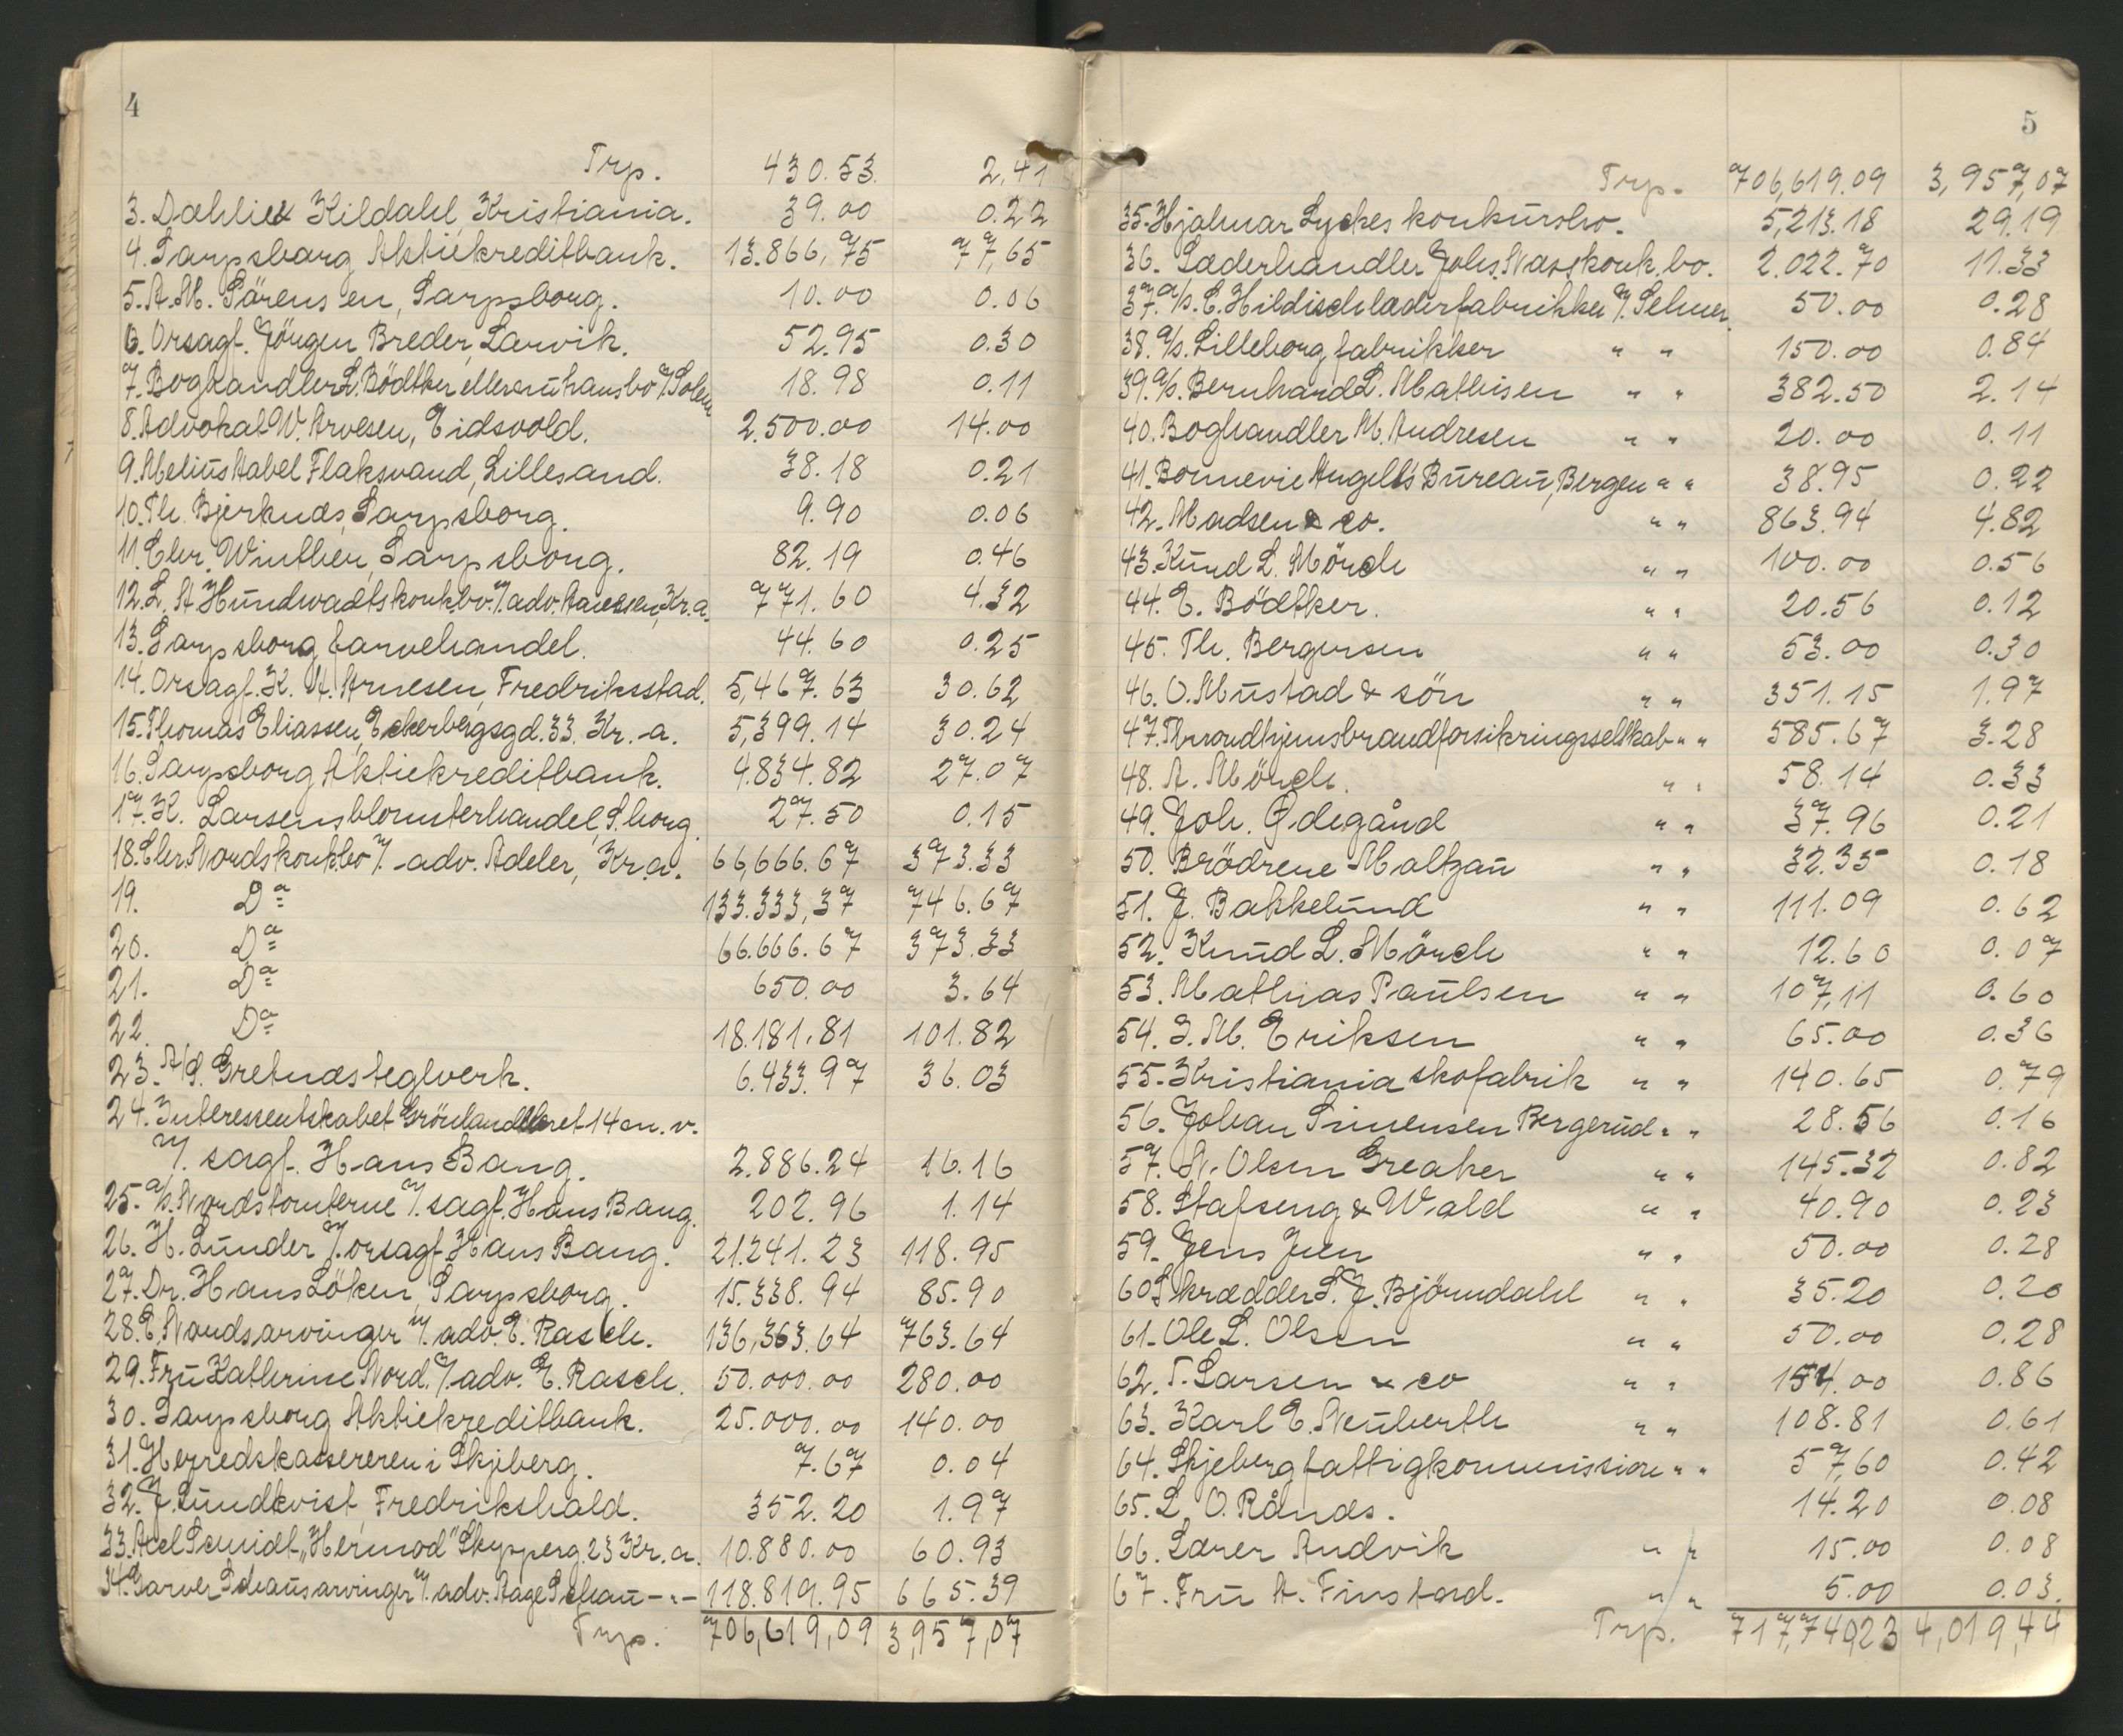 4
Trp. 430.53. 2,41
3. Dahlie & Kildahl, Kristiania. 39.00 0.22
4. Sarpsborg Aktiekreditbank. 13.866,75 77,65
5. A.M. Sørensen, Sarpsborg. 10.00 0.06
6. Orsagf. Jörgen Breder, Larvik. 52.95 0.30
7. Boghandler L. Bödtker eller enuhansbo v/. Solem 18.98 0.11
8. Advokat W. Arvesen, Eidsvold. 2.500.00 14.00
9. Melius Aabel Flaksvand, Lillesand. 38.18 0.21
10. Th. Bjerknæs, Sarpsborg. 9.90 0.06
11. Chr. Winther, Sarpsborg. 82.19 0.46
12. L. A. Hundwadtskonk.bo. v/. adv. Aanesen, Kr.a. 771.60 4.32
13. Sarpsborg farvehandel. 44.60 0.25
14. Orsagf. K. A. Arnesen, Fredriksstad. 5,467.63 30.62
15. Thomas Eliassen, Eckerbergsgd. 33. Kr.-a. 5,399.14 30.24
16. Sarpsborg Aktiekreditbank. 4.834.82 27.07
17. K. Larsens blomsterhandel, S.borg. 27.50 0.15
18. Chr. Nordskonk.bo v/. adv. Adeler, Kr.a. 66,666.67 373.33
19. Do 133.333,37 746.67
20. Do 66.666.67 373.33
21. Do 650.00 3.64
22. Do 18.181.81 101.82
23. A/S. Gretnæs teglverk. 6.433.97 36.03
24. Interessentskabet Grönland 14 m. v.
v/. sagf. Hans Bang. 2.886.24 16.16
25. a/s. Nordstomterne v/. sagf. Hans Bang. 202.96 1.14
26. H. Lunder v/. orsagf. Hans Bang. 21.241.23 118.95
27. Dr. Hans Löken, Sarpsborg. 15.338.94 85.90
28. E. Nordsarvinger v/. adv. E. Rasch. 136,363.64 763.64
29. Fru Kathrine Nord. v/. adv. E. Rasch. 50.000.00 280.00
30. Sarpsborg Aktiekreditbank. 25.000.00 140.00
31. Herredskassereren i Skjeberg. 7.67 0.04
32. J. Lundkvist, Fredrikshald. 352.20 1.97
33. Axel Scmidt "Hermod" Skipperg. 23 Kr.a. 10.880.00 60.93
34. Garver Schausarvinger v/. adv. Aage Schau -"- 118.819.95 665.39
Trp. 706,619,09 3,957,07
5
Trp. 706,619.09 3,957,07
35. Hjalmar Lyckes konkursbo. 5,213.18 29.19
36. Læderhandler Johs. Næss konk.bo. 2.022.70 11.33
37. a/s. C. Hildisch læderfabrikker v/. Selmer. 50.00 0.28
38. a/s. Lilleborg fabrikker " " 150.00 0.84
39. a/s. Bernhard L. Mathisen " " 382.50 2.14
40. Boghandler M. Andresen " " 20.00 0.11
41. Bonnevie Angells Bureau, Bergen " " 38.95 0.22
42. Madsen & co. " " 863.94 4.82
43. Knud L. Mörch " " 100.00 0.56
44. E. Bödtker. " " 20.56 0.12
45. Th. Bergersen " " 53.00 0.30
46. O. Mustad & sön " " 351.15 1.97
47. Throndhjemsbrandforsikringsselskab " " 585.67 3.28
48. A. Mörch. " " 58.14 0.33
49. Joh. Ødegård " " 37.96 0.21
50. Brödrene Maltzau " " 32.35 0.18
51. J. Bakkelund " " 111.09 0.62
52. Knud L. Mörch " " 12.60 0.07
53. Mathias Paulsen " " 107,11 0.60
54. J. M. Eriksen " " 65.00 0.36
55. Kristiania skofabrik " " 140.65 0.79
56. Johan Simensen Bergerud " " 28.56 0.16
57. N. Olsen Greaker " " 145.32 0.82
58. Stafseng & Wold " " 40.90 0.23
59. Jens Juen " " 50.00 0.28
60. Skrædder S. J. Björndahl " " 35.20 0.20
61. Ole L. Olsen " " 50.00 0.28
62. T. Larsen & co " " 154.00 0.86
63. Karl E. Neuberth " " 108.81 0.61
64. Skjeberg fattigkommission " " 57,60 0.42
65. L. O. Rånås. 14.20 0.08
66. Lærer Andvik " " 15.00 0.08
67. Fru A. Finstad. " " 5.00 0.03.
Trp. 717,740,23 4,019,44